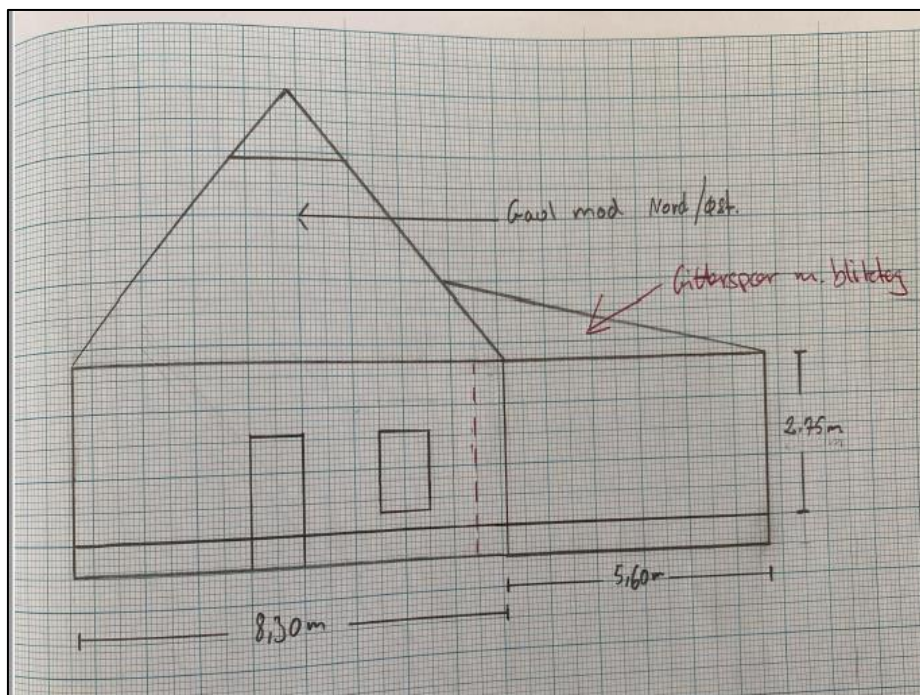 Gavl mod Nord/Øst.
Gitterspær m. bliktag
2.75m
5,60m
8,30m